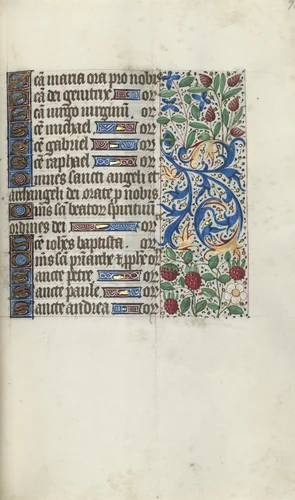 Sca maria ora pro nobis
Sca dei genitrix or
Sca virgo virginum or
Sce michael or
Sce gabriel or
Sce raphael or
Omnes sancti angeli et
archangeli dei orate p nobis
Omns sci beator spirituum
ordines dei or
Sce iohes baptista. or
Omns sci priarche & pphe or
Sancte petre or
Sancte paule or
Sancte andrea or